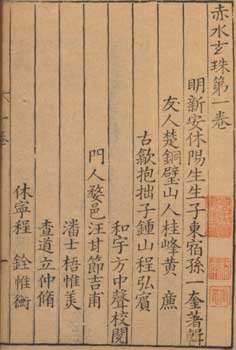 赤水玄珠第一卷
明新安休陽生生子東宿孫一奎著輯
友人楚銅壁山人桂峰黃 廉
古歙抱拙子鍾山程弘賓
和宇方中聲校閱
門人婺邑汪甘節吉甫
潘士梧惟美
查道立仲脩
休寧程 銓惟衡